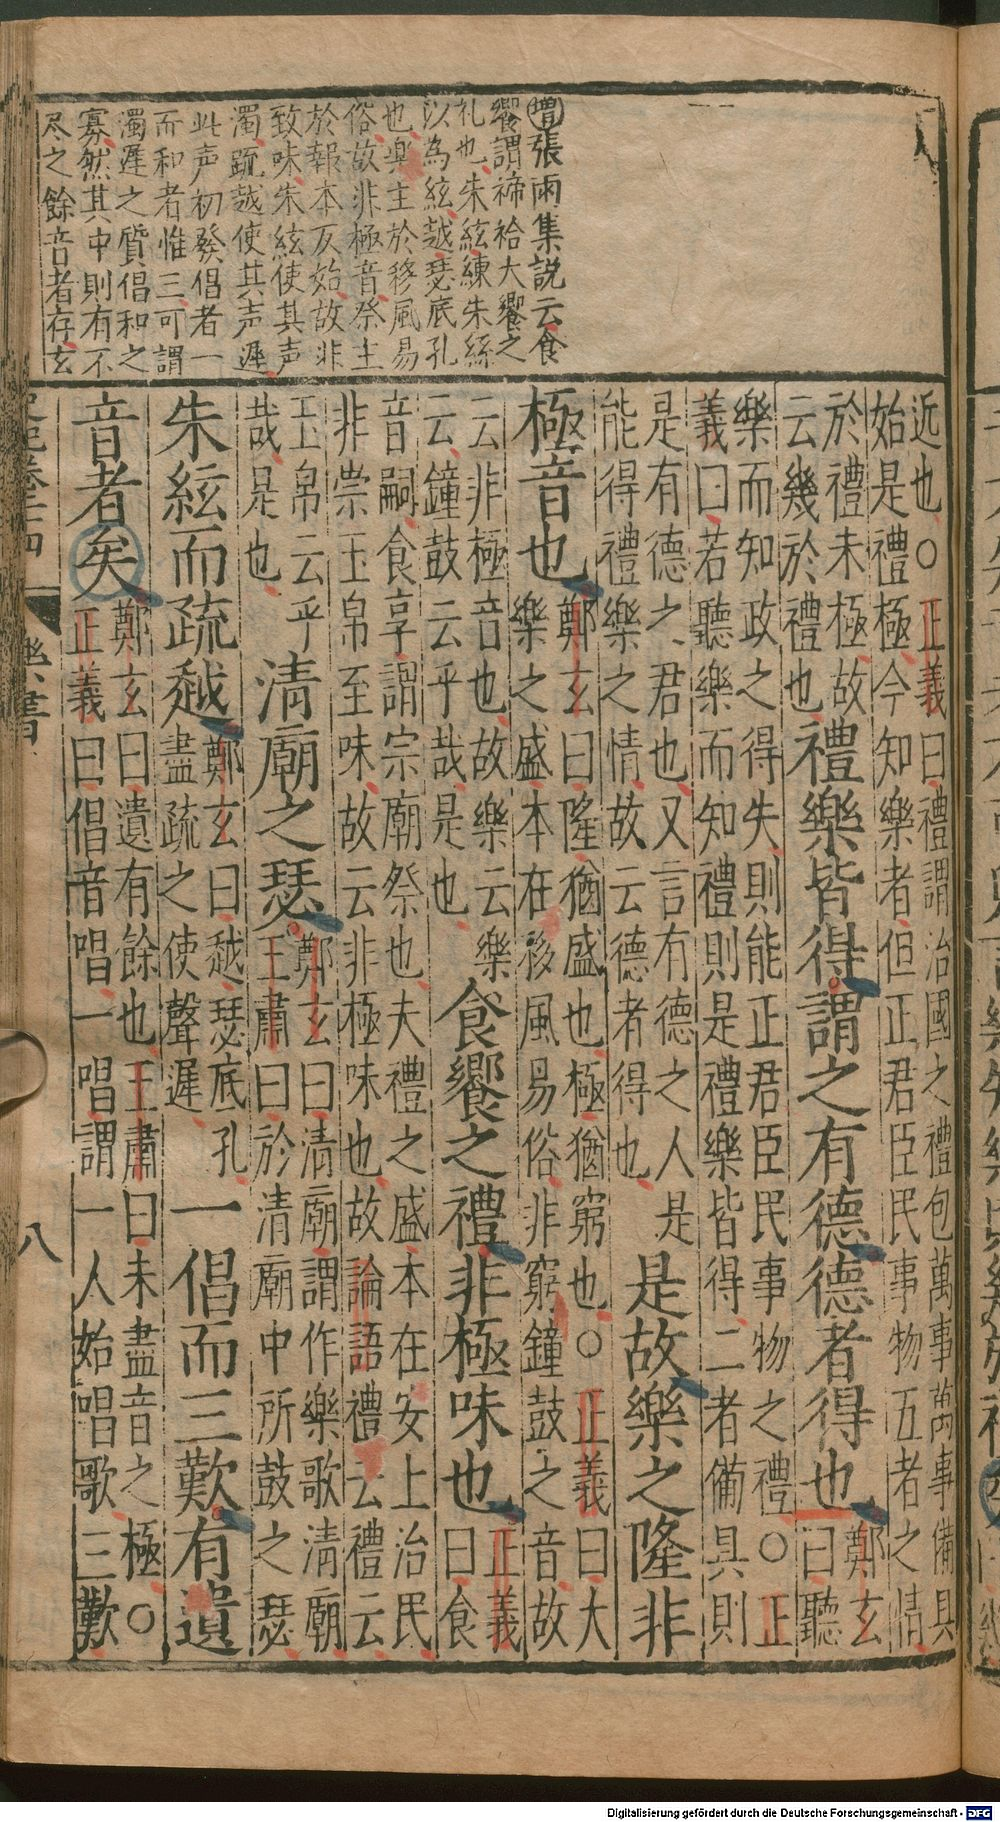 增張雨集説云食
饗謂禘祫大饗之
礼也朱絃練朱絲
以為絃越瑟底孔
也樂主於移風易
俗故非極音祭主
於報本反始故非
致味朱絃使其声
濁疏越使其声遲
此声初發倡者一
而和者惟三可謂
濁遲之質倡和之
寡然其中則有不
尽之餘音者存玄
近也○正義曰禮謂治國之禮包萬事萬事備具
始是禮極今知樂者但正君臣民事物五者之情
於禮未極故云幾於禮也禮樂皆得謂之有德德者得也鄭玄曰聽
樂而知政之得失則能正君臣民事物之禮○正
義曰若聽樂而知禮則是禮樂皆得二者備具則
是有德之君也又言有德之人是能得禮樂之情故云德者得也是故樂之隆非
極音也鄭玄曰隆猶盛也極猶窮也○正義曰大樂之盛本在移風易俗非窮鐘鼓之音故
云非極音也故樂云樂云鐘鼓云乎哉是也食饗之禮非極味也正義曰食
音嗣食享謂宗廟祭也夫禮之盛本在安上治民
非崇玉帛至味故云非極味也故論語禮云禮云
玉帛云乎哉是也清廟之瑟鄭玄曰清廟謂作樂歌清廟王肅曰於清廟中所鼓之瑟
朱絃而疏越鄭玄曰越瑟底孔盡疏之使聲遲一倡而三歎有遺
音者矣鄭玄曰遺有餘也王肅曰未盡音之極○正義曰倡音唱一唱謂一人始唱歌三歎
樂書 八
Digitalisierung gefördert durch die Deutsche Forschungsgemeinschaft - DFG